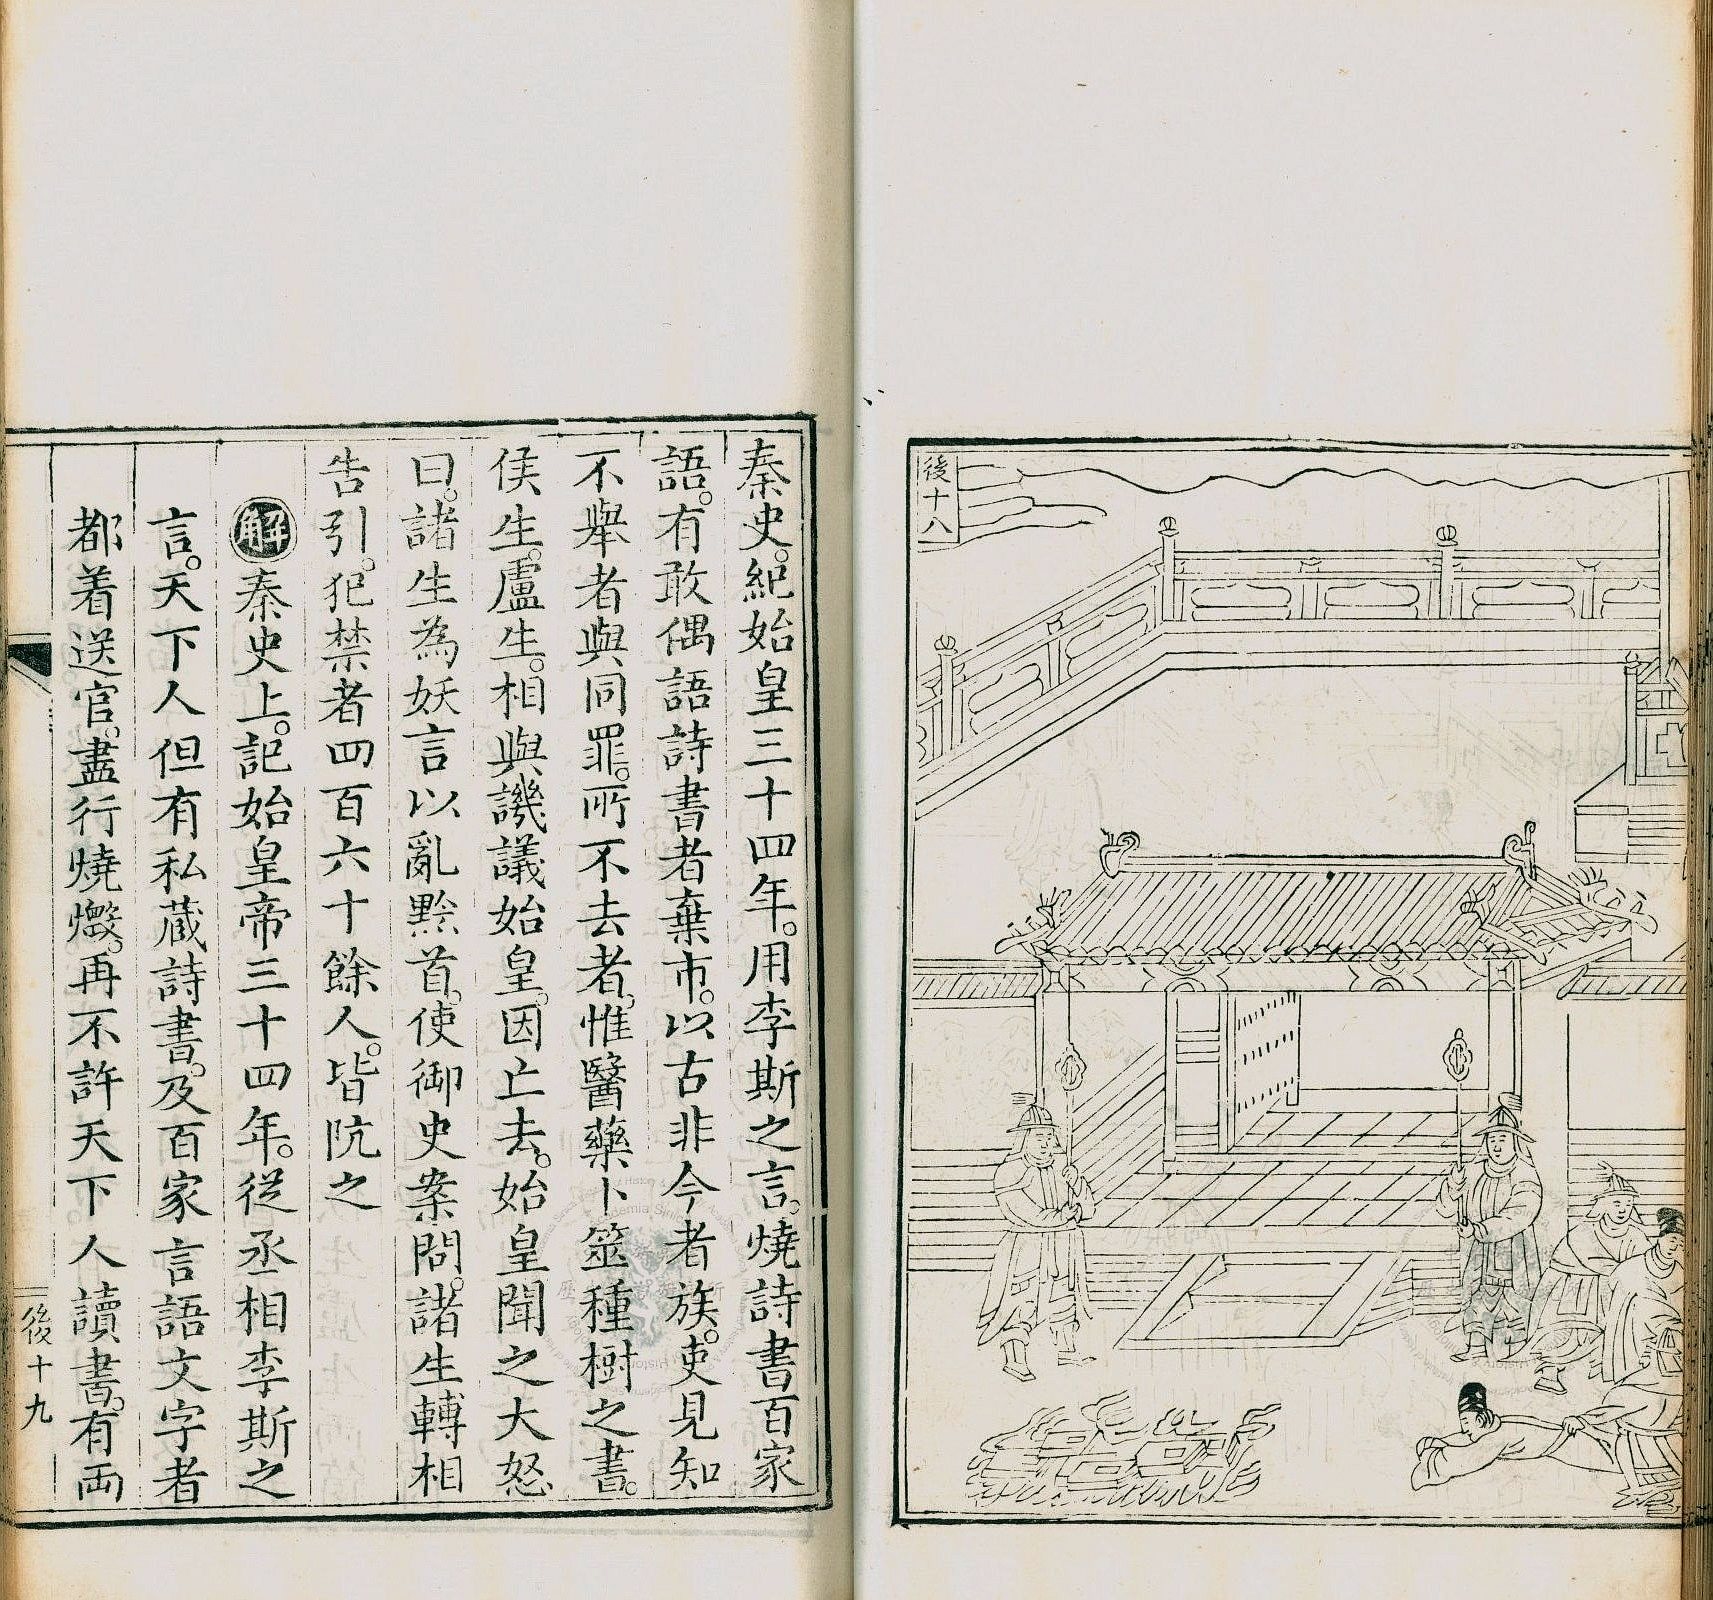 後十八
秦史。紀始皇三十四年。用李斯之言。燒詩書百家
語。有敢偶語詩書者棄市。以古非今者族。吏見知
不舉者與同罪。所不去者。惟醫藥卜筮種樹之書。
侯生。盧生。相與譏議始皇。因亡去。始皇聞之大怒
曰。諸生為妖言以亂黔首。使御史案問。諸生轉相
告引。犯禁者四百六十餘人。皆阬之
解秦史上。記始皇帝三十四年。從丞相李斯之
言。天下人但有私藏詩書。及百家言語文字者
都着送官。盡行燒燬。再不許天下人讀書。有両
後十九